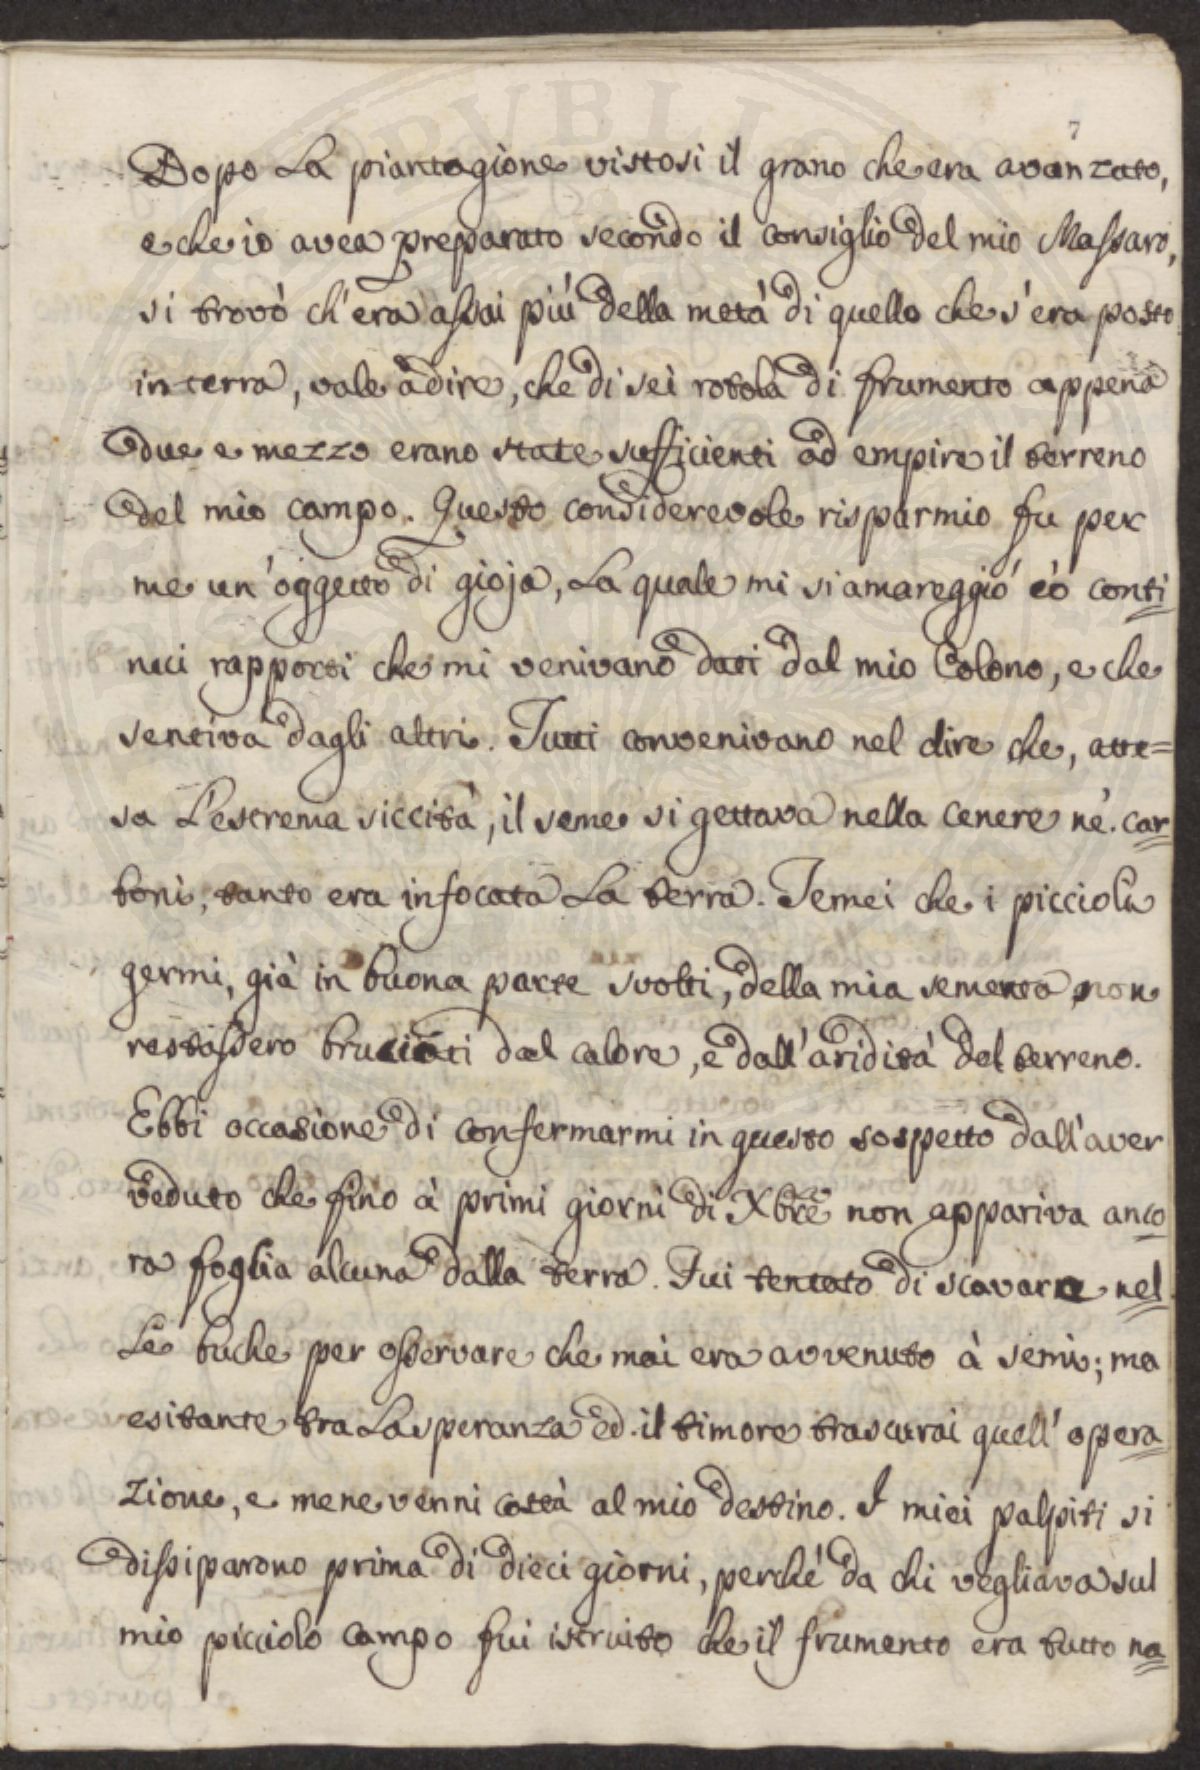 7
Dopo la piantagione vistosi il grano che era avanzato,
e che io avea preparato secondo il consiglio del mio Massaro,
si trovò ch'era assai più della metà di quello che s'era posto
in terra, vale à dire, che di sei rotola di frumento appena
due e mezzo erano state sufficienti ad empire il terreno
del mio campo. Questo considerevole risparmio fu per
me un'oggetto di gioja, la quale mi si amareggiò cò conti=
nui rapporti che mi venivano dati dal mio Colono, e che
sentiva dagli altri. Tutti convenivano nel dire che, atte=
sa l'estrema siccità, il seme si gettava nella cenere né car=
boni, tanto era infocata la terra. Temei che i piccioli
germi, già in buona parte svolti, della mia sementa non
restassero bruciati dal calore, e dall'aridità del terreno.
Ebbi occasione di confermarmi in questo sospetto dall'aver
veduto che fino à primi giorni di Xbre non appariva anco=
ra foglia alcuna dalla terra. Fui tentato di scavare nel=
le buche per osservare che mai era avvenuto à semi; ma
esitante tra la speranza ed il timore trascurai quell'opera=
zione, e me ne venni costà al mio destino. I miei palpiti si
dissiparono prima di dieci giorni, perché da chi vegliava sul
mio picciolo campo fui istruito che il frumento era tutto na=